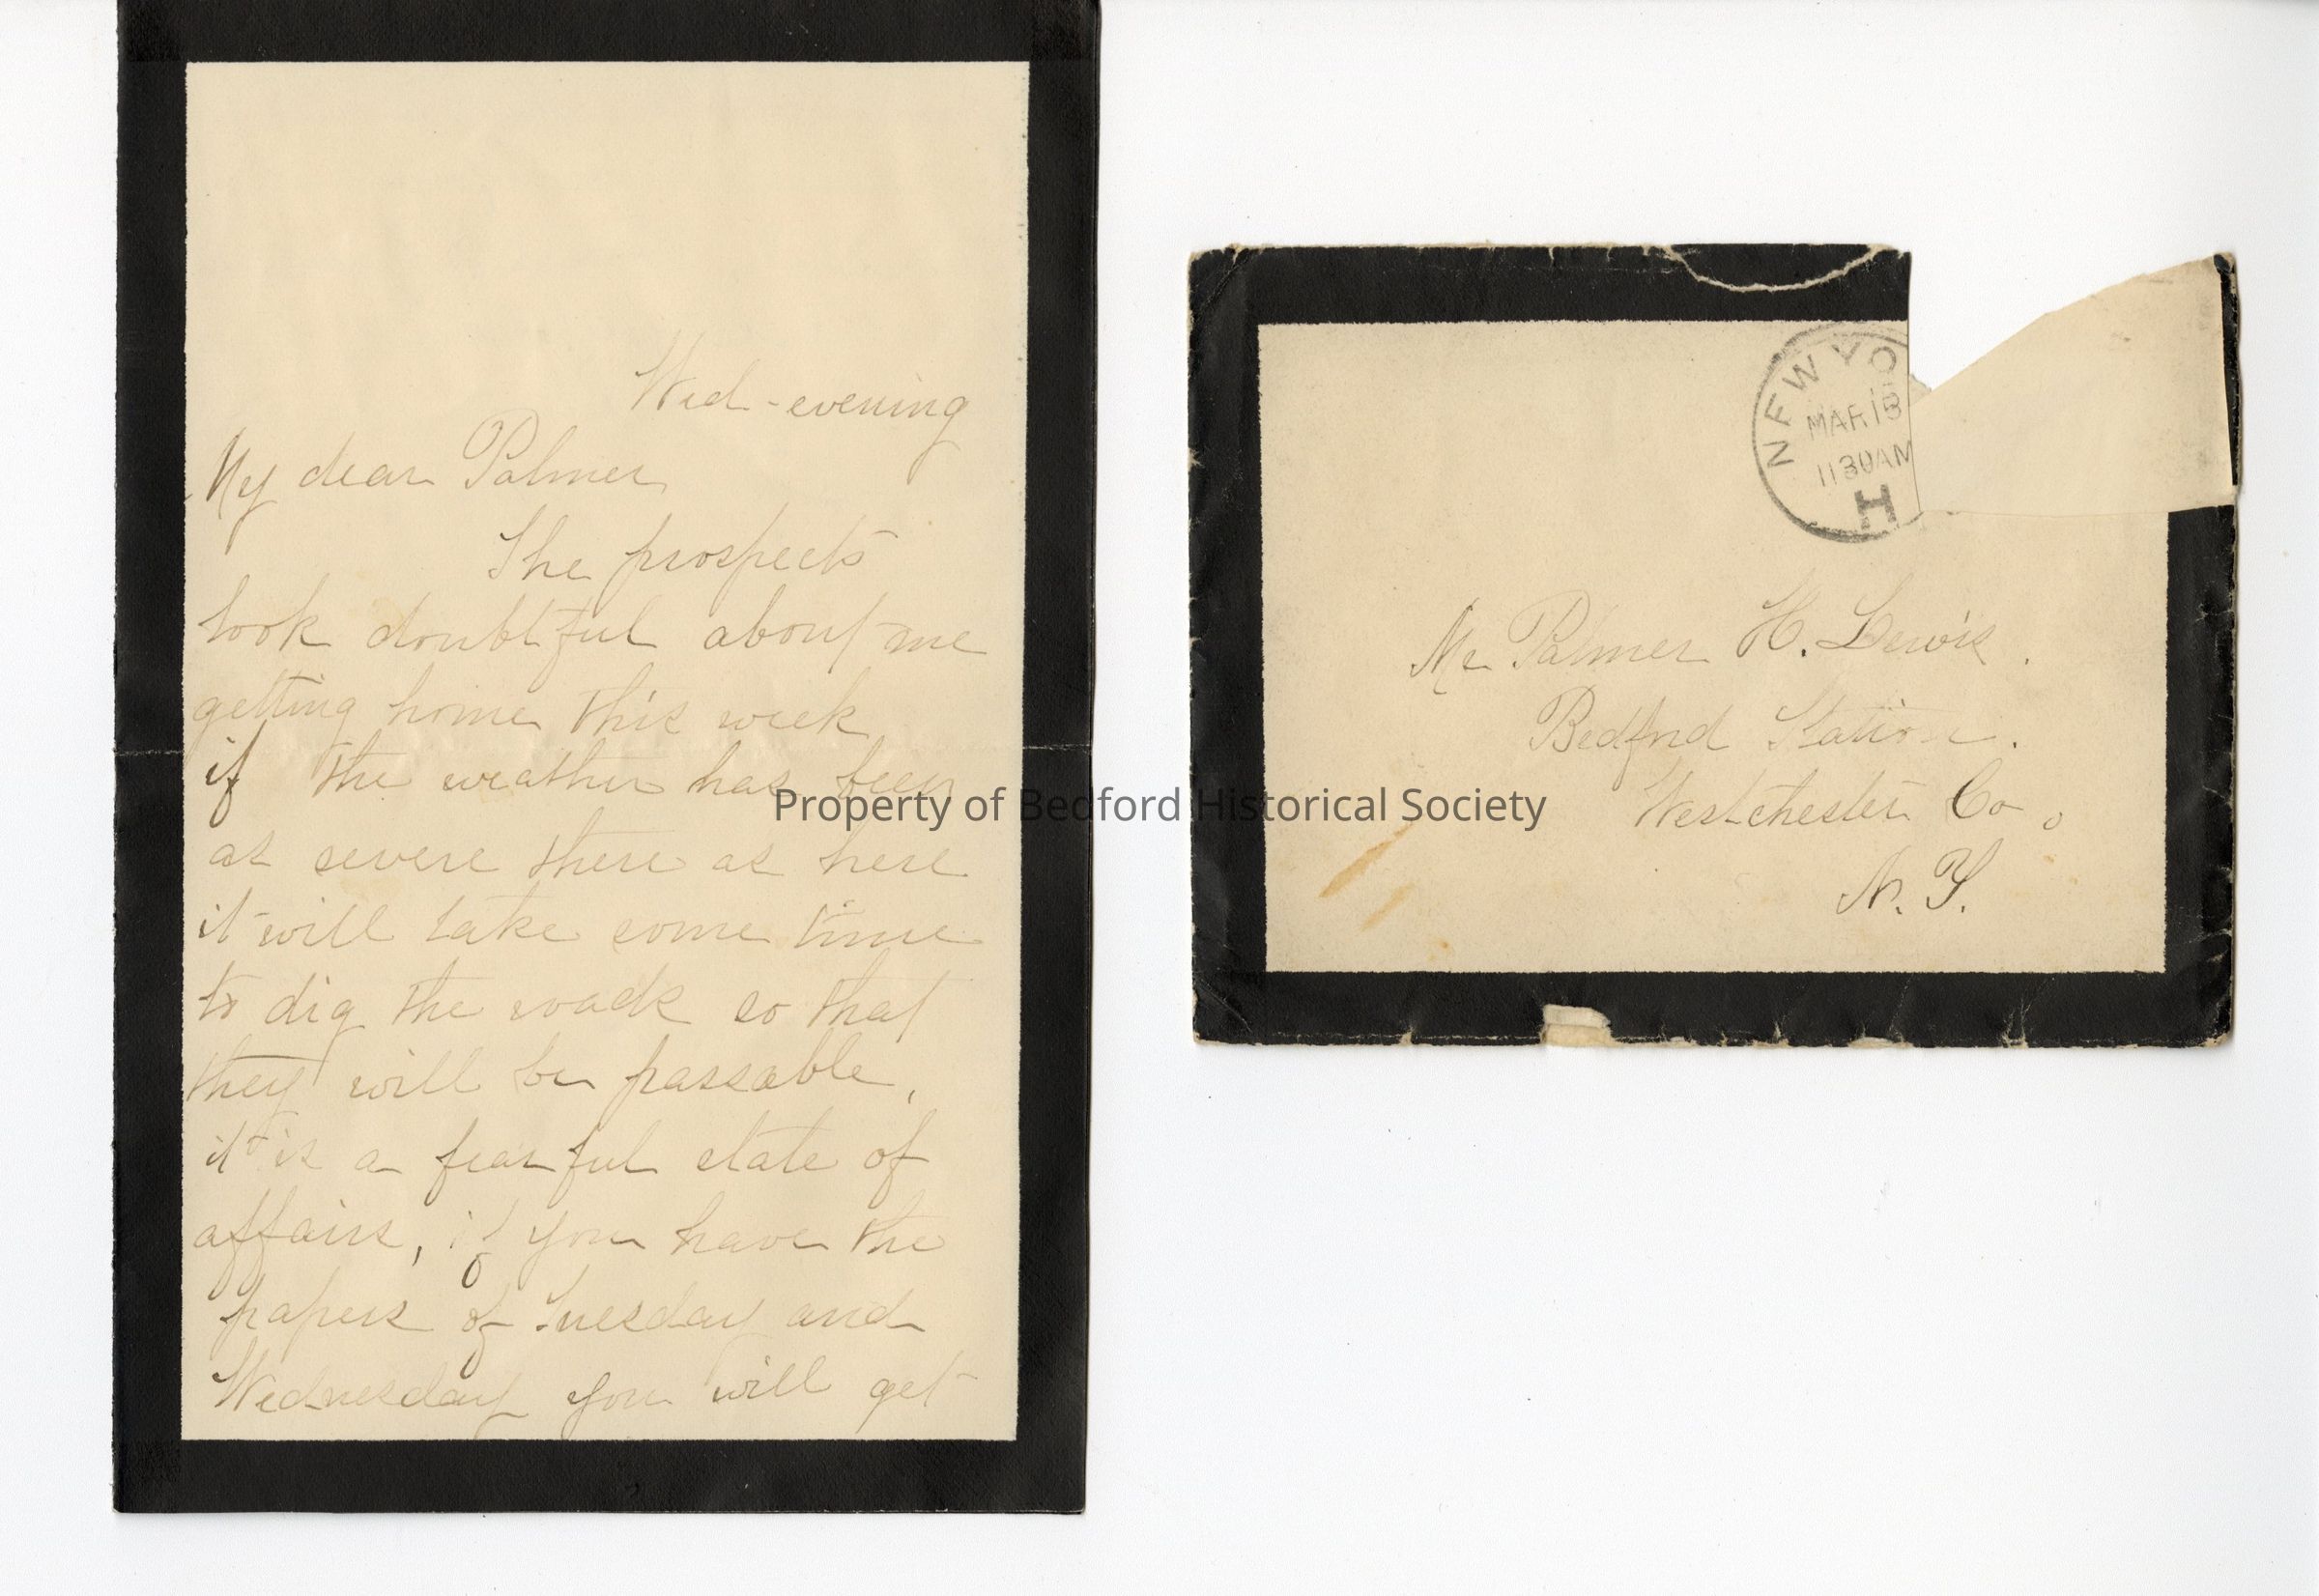 Wed - evening
My dear Palmer
The prospects
look doubtful about me
getting home this week
if the weather has been
as severe there as here
it will take some time
to dig the roads so that
they will be passable,
it is a fearful state of
affairs, if you have the
papers of Tuesday and
Wednesday you will get
NEW YO
MAR 15
1130AM
H
Mr Palmer H. Lewis.
Bedford Station.
Westchester Co.
N. Y.
Property of Bedford Historical Society